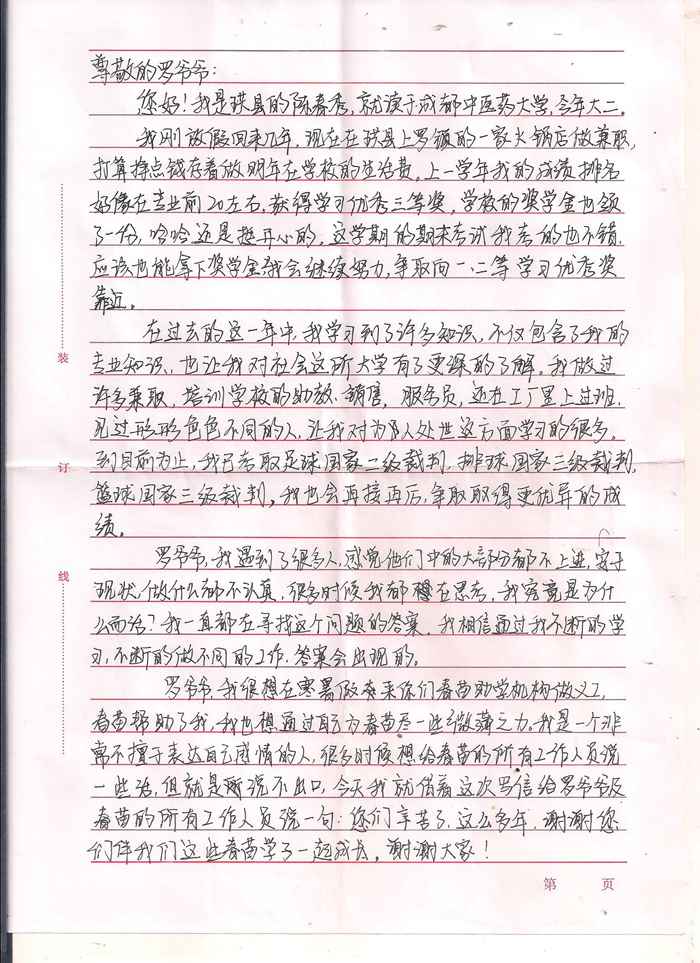 尊敬的罗爷爷：
您好！我是珙县的陈春秀，就读于成都中医药大学，今年大二。
我刚放假回来几年，现在在珙县上罗镇的一家火锅店做兼职，
打算挣点钱存着做明年在学校的生活费，上一学年我的成绩排名
好像在专业前20左右，获得学习优秀三等奖，学校的奖学金也领
了一份，哈哈还是挺开心的，这学期的期末考试我考的也不错，
应该也能拿下奖学金，我会继续努力，争取向一、二等学习优秀奖
靠近。
在过去的这一年中，我学习到了许多知识，不仅包含了我的
装
专业知识，也让我对社会这所大学有了更深的了解。我做过
许多兼职，培训学校的助教、销售，服务员，还在工厂里上过班，
见过形形色色不同的人，让我对为人处世这方面学习的很多。
订
到目前为止，我已考取足球国家二级裁判，排球国家三级裁判，
篮球国家三级裁判，我也会再接再厉，争取取得更优异的成
绩。
罗爷爷，我遇到了很多人，感觉他们中的大部分都不上进，安于
线
现状，做什么都不认真，很多时候我都想在思考，我究竟是为什
么而活？我一直都在寻找这个问题的答案，我相信通过我不断的学
习，不断的做不同的工作，答案会出现的。
罗爷爷，我很想在寒暑假来你们春苗助学机构做义工，
春苗帮助了我，我也想通过自己为春苗尽一些微薄之力。我是一个非
常不擅于表达自己感情的人，很多时候想给春苗的所有工作人员说
一些话，但就是说不出口，今天我就借着这次写信给罗爷爷及
春苗的所有工作人员说一句：您们辛苦了，这么多年，谢谢您
们伴我们这些春苗学子一起成长，谢谢大家！
第 页